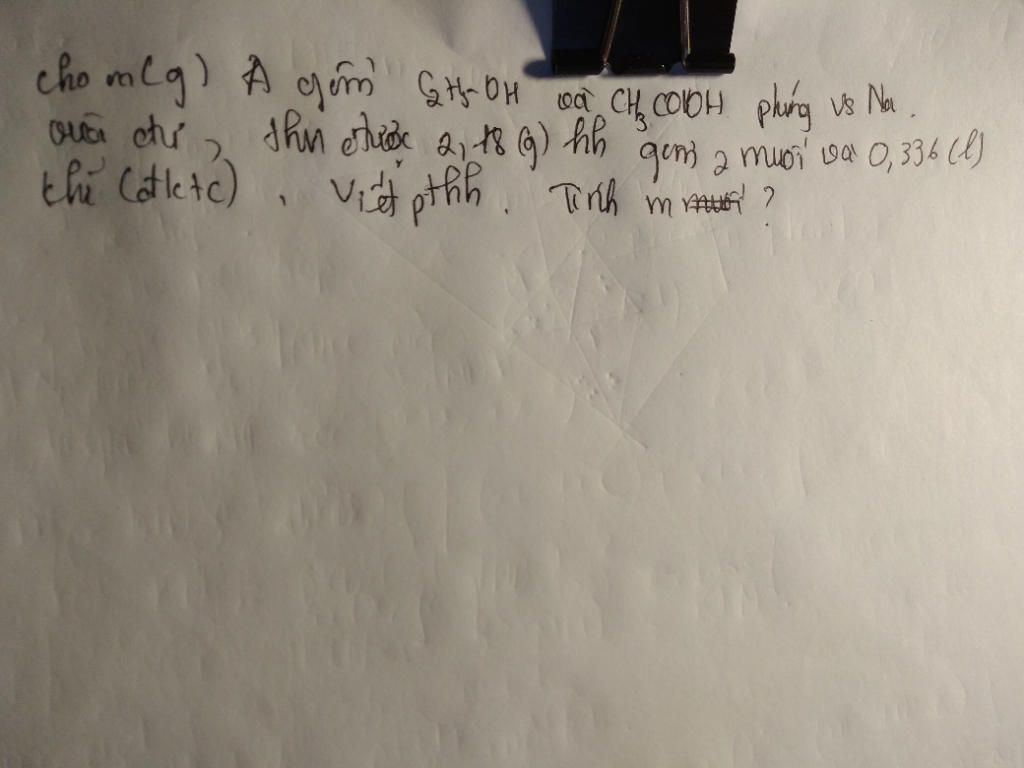 cho m(g) A gồm C2H5-OH và CH3COOH phứng vs Na.
vừa đủ, thu được 2,18 (g) hh gồm 2 muối và 0,336 (l)
khí (đktc). Viết pthh. Tính m muối ?